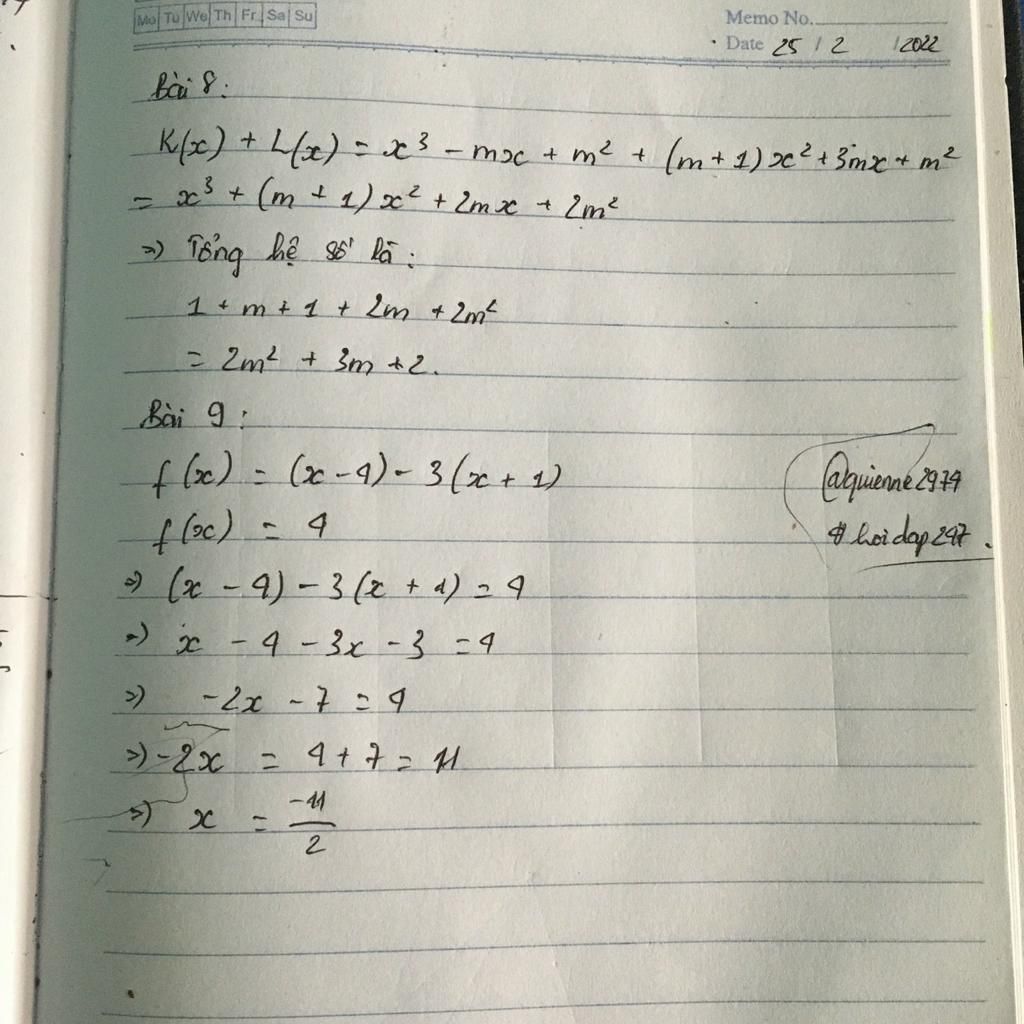 Mo Tu We Th Fr Sa Su
Memo No.
Date 25 / 2 / 2022
Bài 8:
K(x) + L(x) = x³ - mx + m² + (m + 1)x² + 3mx + m²
= x³ + (m + 1)x² + 2mx + 2m²
=> Tổng hệ số là:
1 + m + 1 + 2m + 2m²
= 2m² + 3m + 2.
Bài 9:
f(x) = (x - 4) - 3(x + 1)
@quienne2974
f(x) = 4
#hoidap247.
=> (x - 4) - 3(x + 1) = 4
=> x - 4 - 3x - 3 = 4
=> -2x - 7 = 4
=> -2x = 4 + 7 = 11
=> x = -11/2